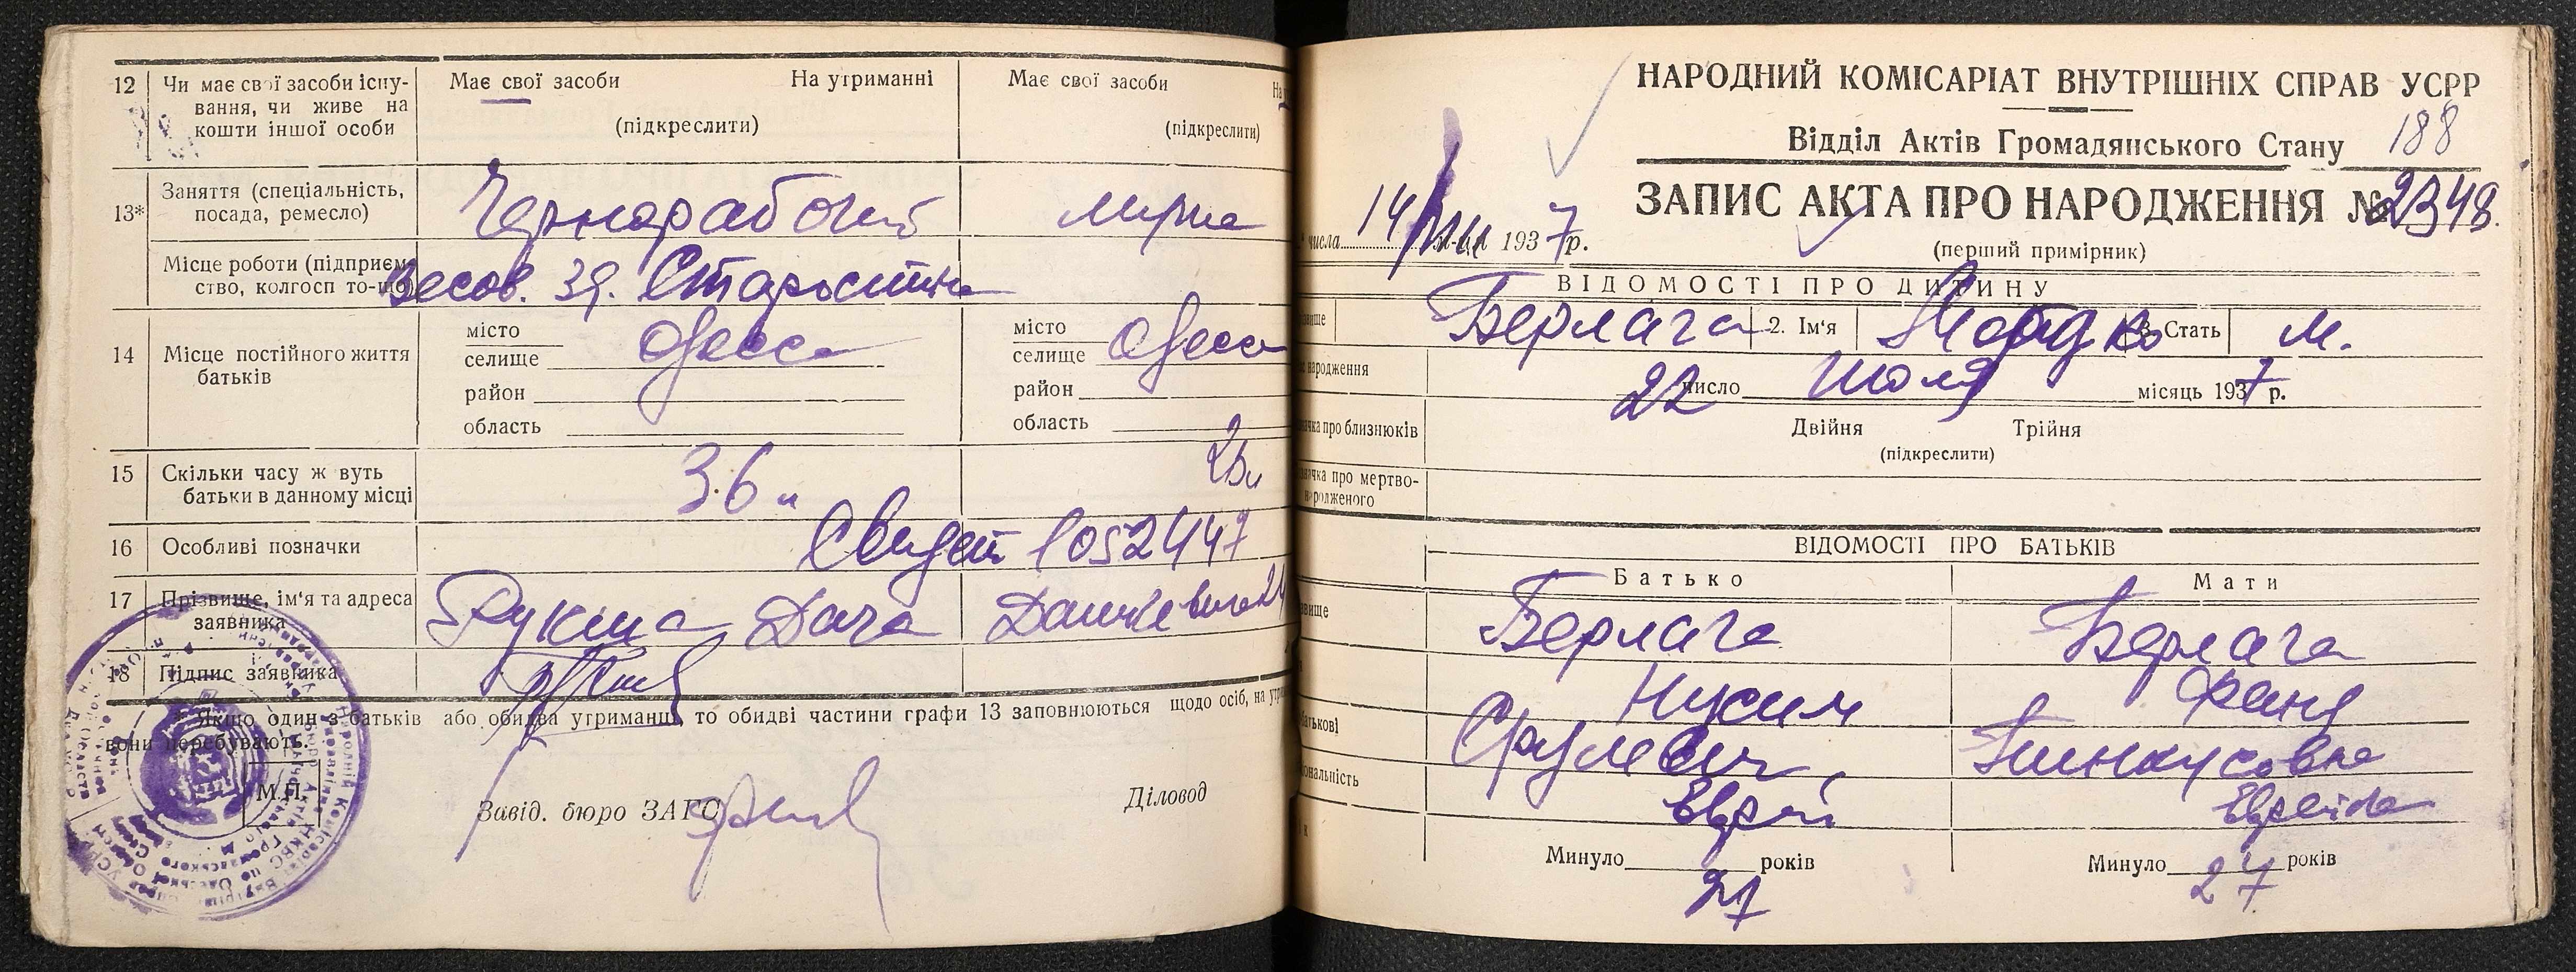 12 Чи має свої засоби існу-
вання, чи живе на
кошти іншої особи
Має свої засоби На утриманні
(підкреслити)
Має свої засоби
(підкреслити)
13* Заняття (спеціальність,
посада, ремесло)
Чернорабочий
Місце роботи (підприєм-
ство, колгосп то-що)
14 Місце постійного життя
батьків
місто
селище
Одесса
район
область
місто
селище
Одесса
район
область
15 Скільки часу ж вуть
батьки в данному місці
16 Особливі позначки
Свидет 1052447
17 Прізвище, ім'я та адреса
заявника
Дача
18 Підпис заявника
* Якщо один з батьків або обидва утриманці, то обидві частини графи 13 заповнюються щодо осіб, на
вони перебувають.
М.П.
Завід. бюро ЗАГС
Діловод
НАРОДНИЙ КОМІСАРІАТ ВНУТРІШНІХ СПРАВ УСРР
Відділ Актів Громадянського Стану 188
ЗАПИС АКТА ПРО НАРОДЖЕННЯ № 2348.
числа 14 1937 р.
(перший примірник)
ВІДОМОСТІ ПРО ДИТИНУ
Берлага 2. Ім'я 3. Стать М.
народження
22 число Июля місяць 1937 р.
про близнюків
Двійня Трійня
(підкреслити)
про мертво-
народженого
ВІДОМОСТІ ПРО БАТЬКІВ
Батько Мати
Берлага Берлага
Нусим Фаня
батькові
Срулевич Пинкусовна
Еврей Еврейка
Минуло років
Минуло 27 років